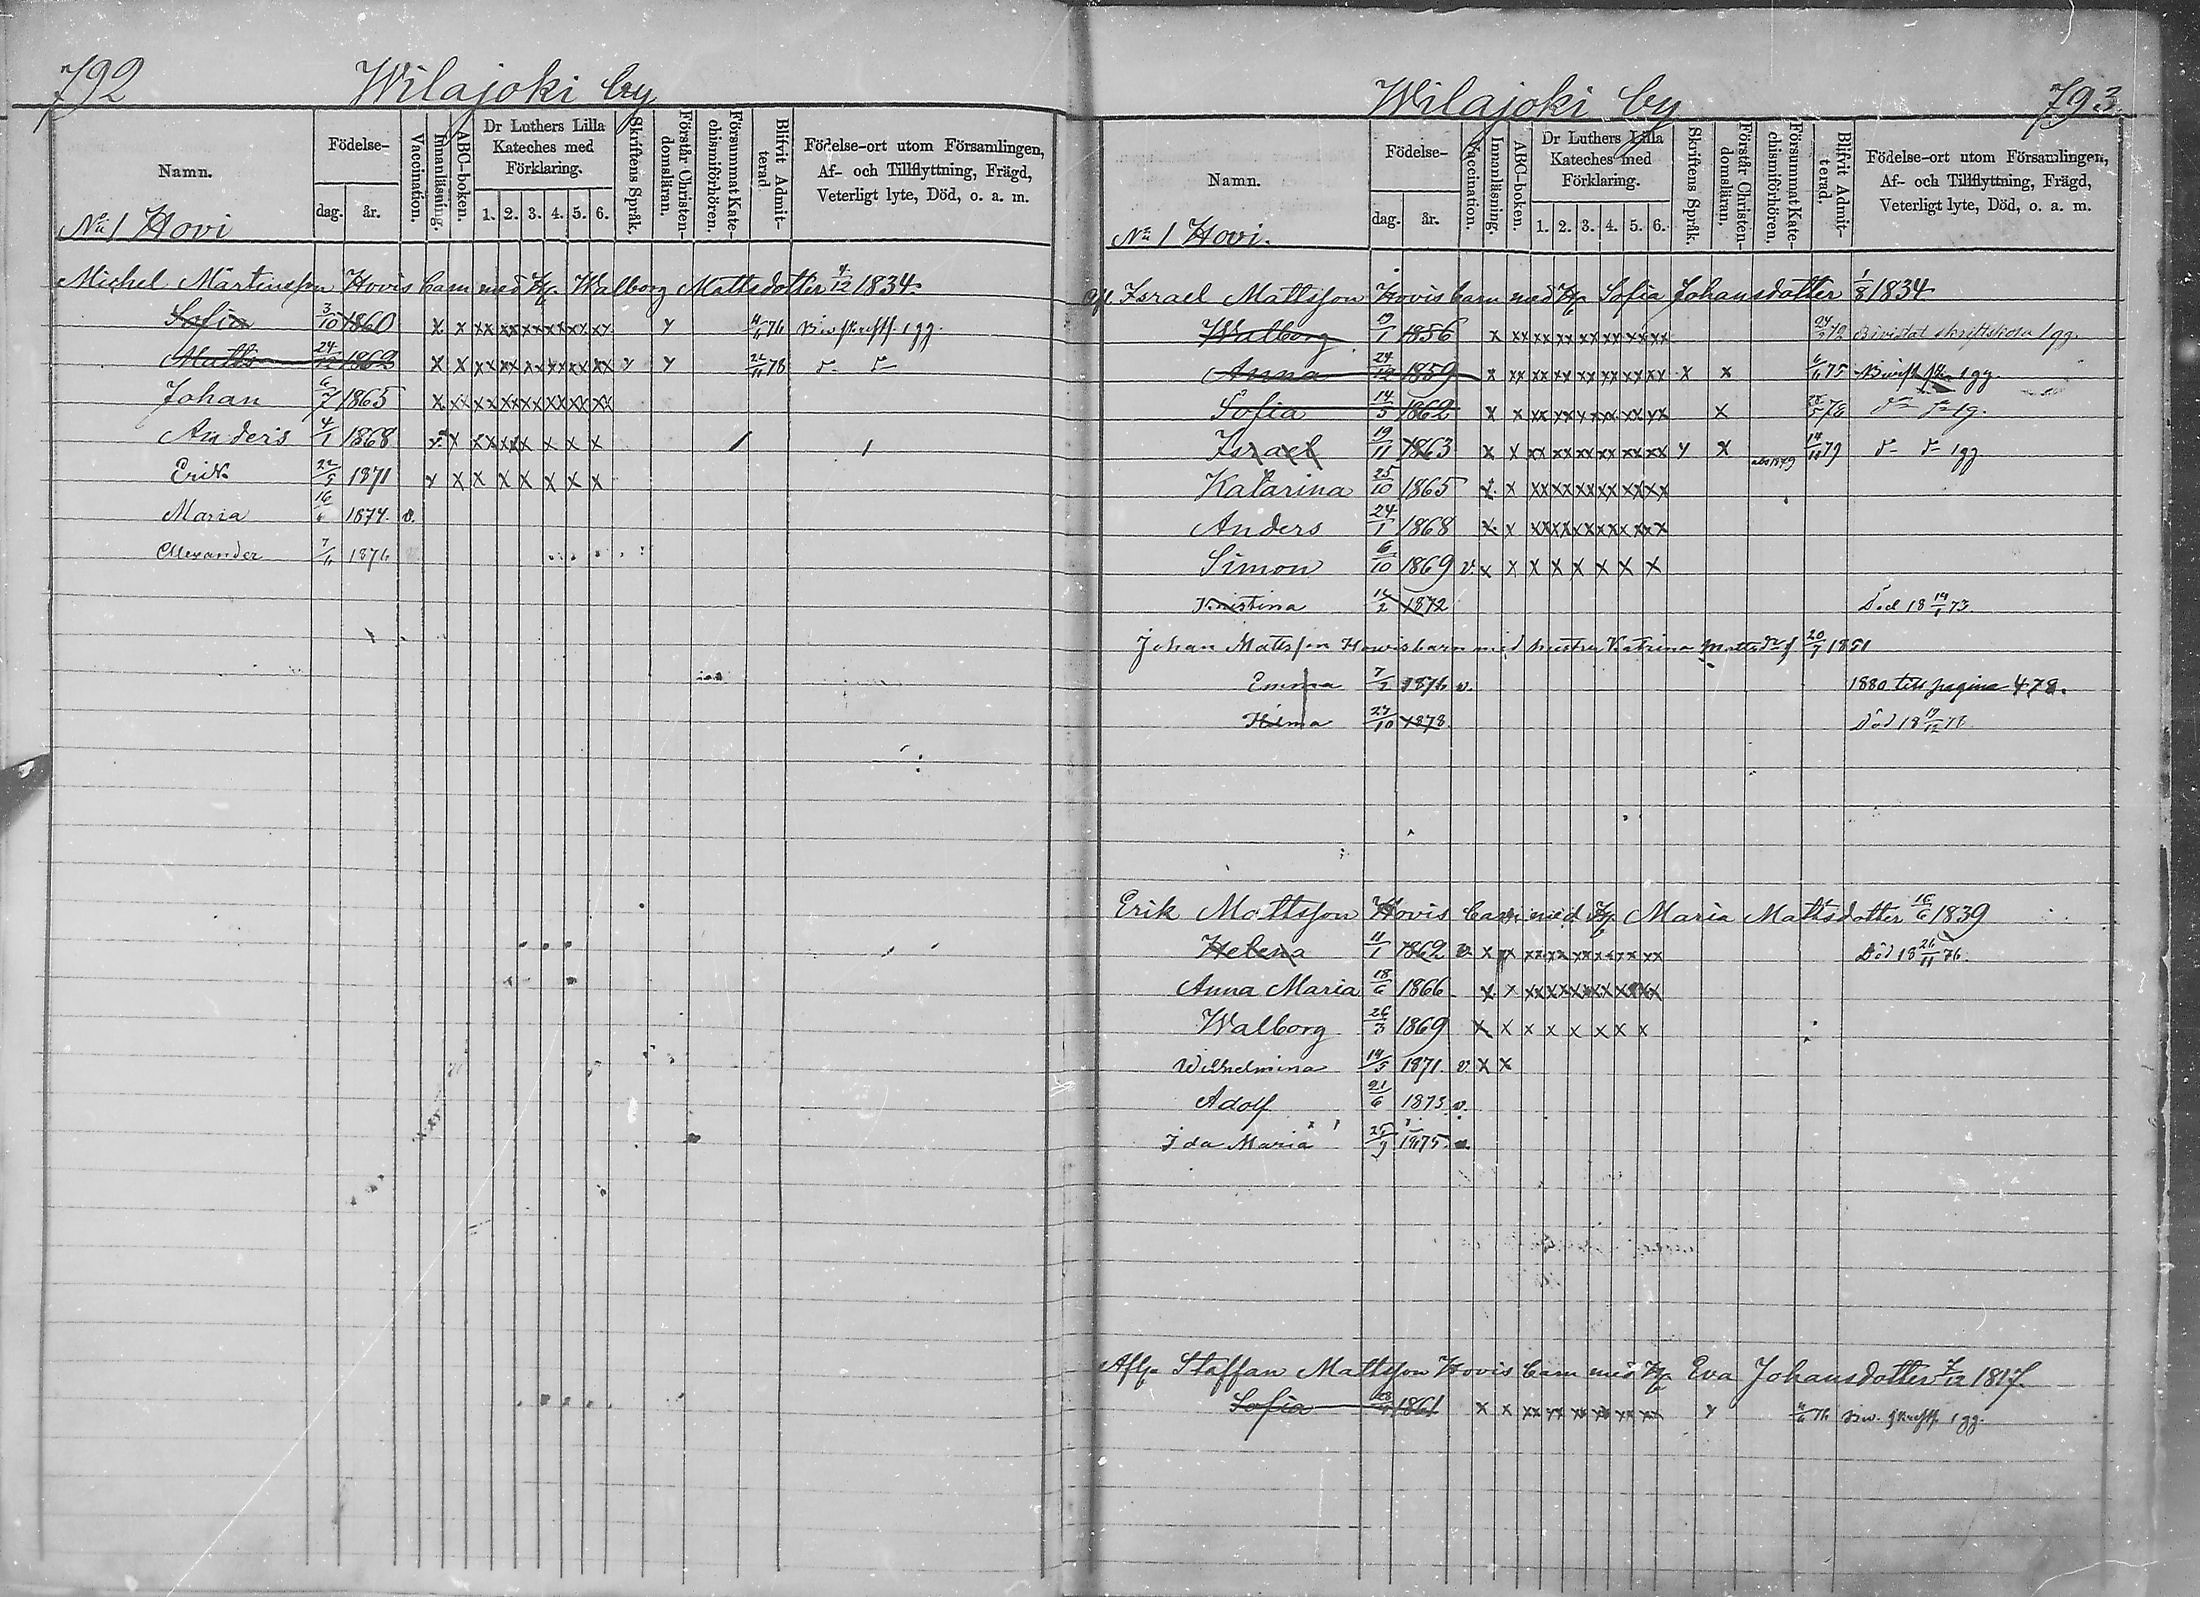 792
Wilajoki by
Namn.
Födelse-
dag. år.
Vaccination.
Innanläsning.
ABC-boken.
Dr Luthers Lilla Kateches med Förklaring.
1. 2. 3. 4. 5. 6.
Skriftens Språk.
Förstår Christen-domsläran.
Försummat Kate-chismiförhören.
Blifvit Admit-terad
Födelse-ort utom Församlingen,
Af- och Tillflyttning, Frägd,
Veterligt lyte, Död, o. a. m.
No 1 Hovi
Michel Mårtensson Hovis barn med Hu Walborg Mattsdotter 4/12 1834
Sofia 3/10 1860 x x xx xx xx xx xx xx
Matts 24/12 1862 x x xx xx xx xx xx xx 22/11 78
Johan 6/7 1865 x xx xx xx xx xx xx xx
Anders 4/1 1868
Erik 22/5 1871 x x x x x x x x
Maria 16/6 1874. v.
Alexander
793
Wilajoki by
Namn.
Födelse-
dag. år.
Vaccination.
Innanläsning.
ABC-boken.
Dr Luthers Lilla Kateches med Förklaring.
1. 2. 3. 4. 5. 6.
Skriftens Språk.
Förstår Christen-domsläran.
Försummat Kate-chismiförhören.
Blifvit Admit-terad.
Födelse-ort utom Församlingen,
Af- och Tillflyttning, Frägd,
Veterligt lyte, Död, o. a. m.
No 1 Hovi.
Israel Mattsson Hovis barn med Hu Sofia Johansdotter 1/8 1834
Walborg 1856 x xx xx xx xx xx xx xx Bivistat skriftskola 1 gg.
Anna 24/12 1859 x xx xx xx xx xx xx xx x x 6/6 75
Sofia 14/5 1862 x x xx xx xx xx xx xx x
Israel 19/11 1863 x x xx xx xx xx xx xx x 79
Katarina 25/10 1865 x x xx xx xx xx xx xx
Anders 24/1 1868 x x xx xx xx xx xx xx
Simon 6/10 1869 v. x x x x x x x x
Kristina 1872 Död 18 73
Johan Mattsson Howis barn med hustru Katrina 20/7 1851
Emma 7/2 v. 1880 till pagina 478.
Hilma 27/10 1878. Död 18 78
Erik Mattsson Hovis barn med Hu Maria Mattsdotter 16/6 1839
Helena 11/1 1862 v. x x xx xx xx xx xx xx Död 18 26/11 76.
Anna Maria 18/6 1866 x x xx xx xx xx xx xx
Walborg 26/3 1869 x x x x x x x x
Wilhelmina 14/5 1871 v. x x
Adolf 21/6 1873 v.
Ida Maria 25/9 1875
Afl. Staffan Mattsson Hovis barn med Hu Eva Johansdotter 7/12 1817.
Sofia 1861 x x xx xx xx xx xx xx 1 gg.